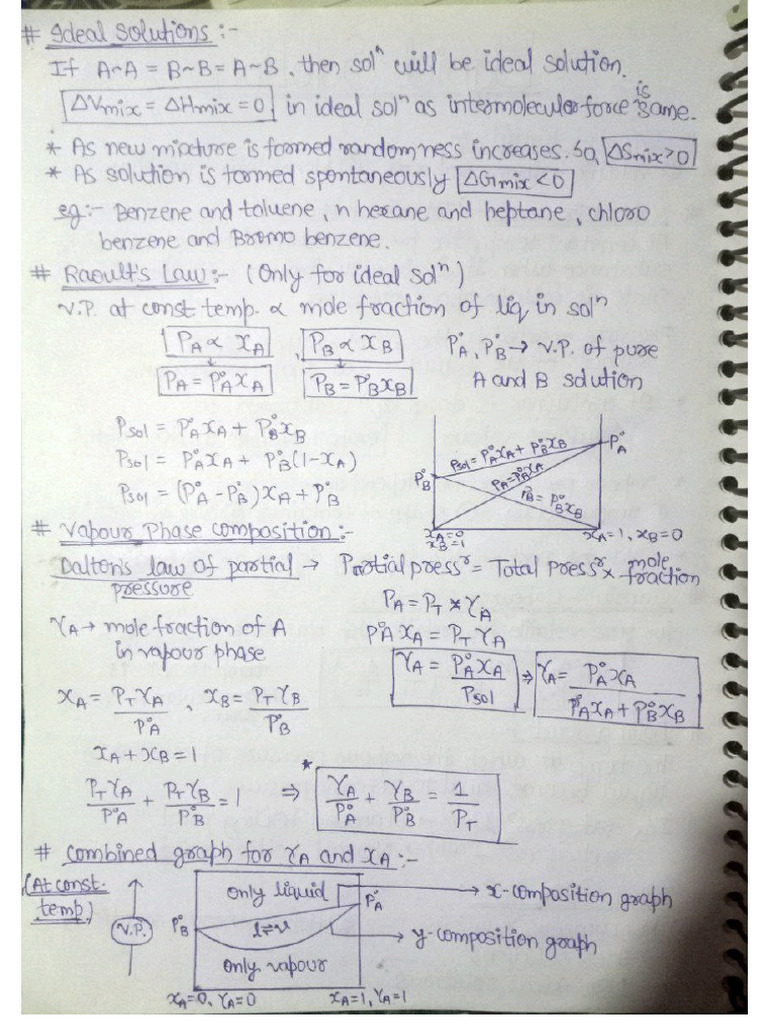 # Ideal Solutions :-
If A~A = B~B = A~B, then solⁿ will be ideal solution.
ΔVmix = ΔHmix = 0 in ideal solⁿ as intermolecular force is same.
* As new mixture is formed randomness increases. So, ΔSmix > 0
* As solution is formed spontaneously ΔGmix < 0
eg:- Benzene and toluene, n hexane and heptane, chloro
benzene and Bromo benzene.
# Raoult's Law :- (Only for ideal solⁿ)
V.P. at const temp. ∝ mole fraction of liq in solⁿ
P_A ∝ x_A P_B ∝ x_B P°_A, P°_B → V.P. of pure
P_A = P°_A x_A P_B = P°_B x_B A and B solution
Psol = P°_A x_A + P°_B x_B
Psol = P°_A x_A + P°_B (1-x_A)
Psol = (P°_A - P°_B) x_A + P°_B
P°_A
P°_B
Psol = P°_A x_A + P°_B x_B
P_A = P°_A x_A
P_B = P°_B x_B
x_A = 0
x_B = 1
x_A = 1, x_B = 0
# Vapour Phase composition :-
Dalton's law of partial → Partial pressʳ = Total pressʳ × mole fraction
pressure
P_A = P_T * Y_A
Y_A → mole fraction of A
in vapour phase
P°_A x_A = P_T Y_A
Y_A = P°_A x_A / Psol ⇒ Y_A = P°_A x_A / P°_A x_A + P°_B x_B
x_A = P_T Y_A / P°_A , x_B = P_T Y_B / P°_B
x_A + x_B = 1
P_T Y_A / P°_A + P_T Y_B / P°_B = 1 ⇒ * Y_A / P°_A + Y_B / P°_B = 1 / P_T
# Combined graph for Y_A and x_A :-
(At const. temp)
V.P.
only liquid
P°_A
→ x-composition graph
P°_B
l ⇌ v
→ y-composition graph
only vapour
x_A = 0, Y_A = 0 x_A = 1, Y_A = 1